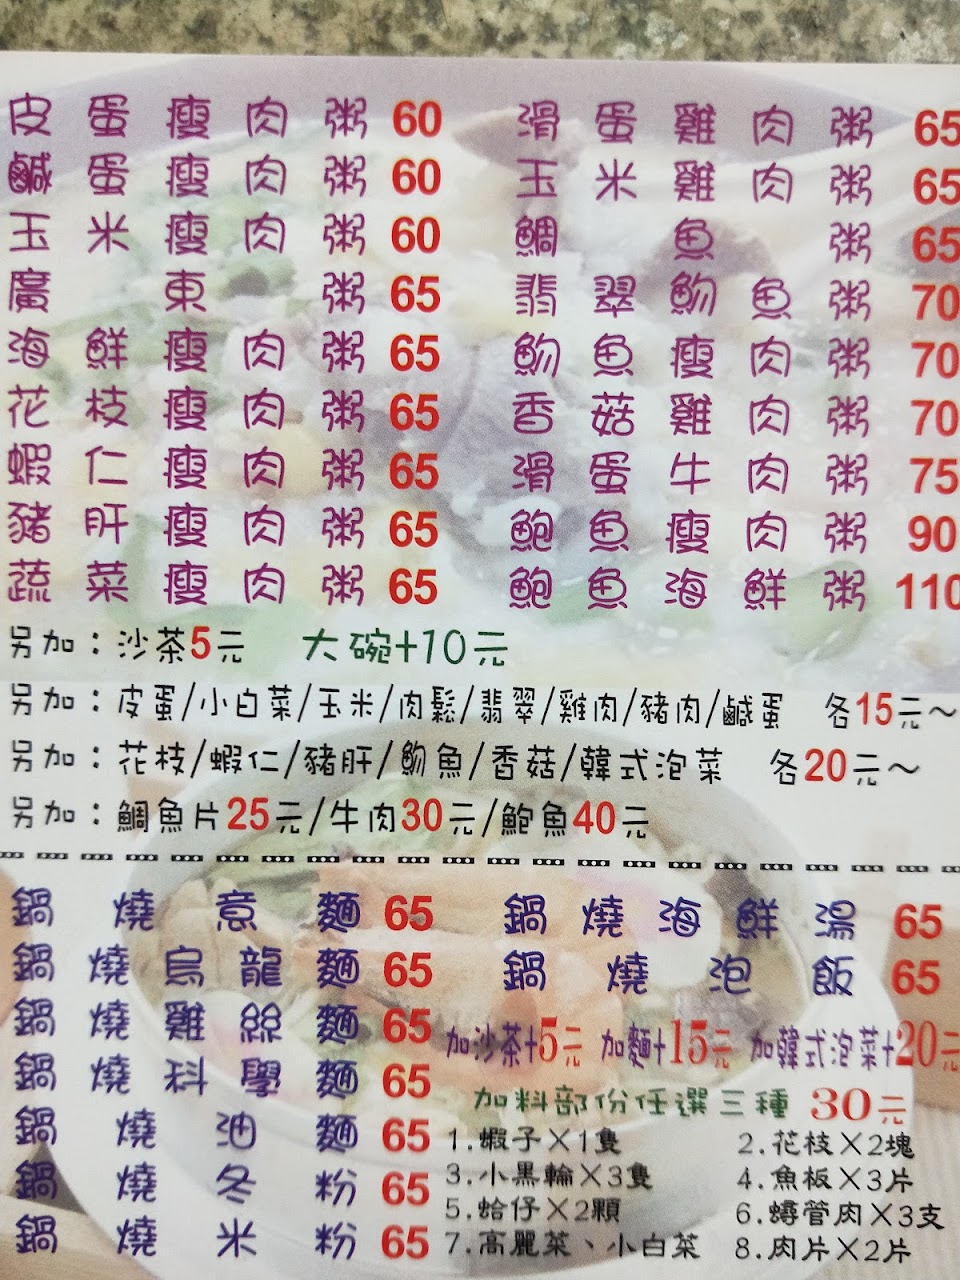 皮蛋瘦肉粥 60 滑蛋雞肉粥 65
鹹蛋瘦肉粥 60 玉米雞肉粥 65
玉米瘦肉粥 60 鯛魚粥 65
廣東粥 65 翡翠魩魚粥 70
海鮮瘦肉粥 65 魩魚瘦肉粥 70
花枝瘦肉粥 65 香菇雞肉粥 70
蝦仁瘦肉粥 65 滑蛋牛肉粥 75
豬肝瘦肉粥 65 鮑魚瘦肉粥 90
蔬菜瘦肉粥 65 鮑魚海鮮粥 110
另加:沙茶5元 大碗+10元
另加:皮蛋/小白菜/玉米/肉鬆/翡翠/雞肉/豬肉/鹹蛋 各15元~
另加:花枝/蝦仁/豬肝/魩魚/香菇/韓式泡菜 各20元~
另加:鯛魚片25元/牛肉30元/鮑魚40元
鍋燒意麵 65 鍋燒海鮮湯 65
鍋燒烏龍麵 65 鍋燒泡飯 65
鍋燒雞絲麵 65 加沙茶+5元 加麵+15元 加韓式泡菜+20元
鍋燒科學麵 65 加料部份任選三種 30元
鍋燒油麵 65 1.蝦子×1隻 2.花枝×2塊
鍋燒冬粉 65 3.小黑輪×3隻 4.魚板×3片
鍋燒米粉 65 5.蛤仔×2顆 6.蟳管肉×3支
7.高麗菜、小白菜 8.肉片×2片